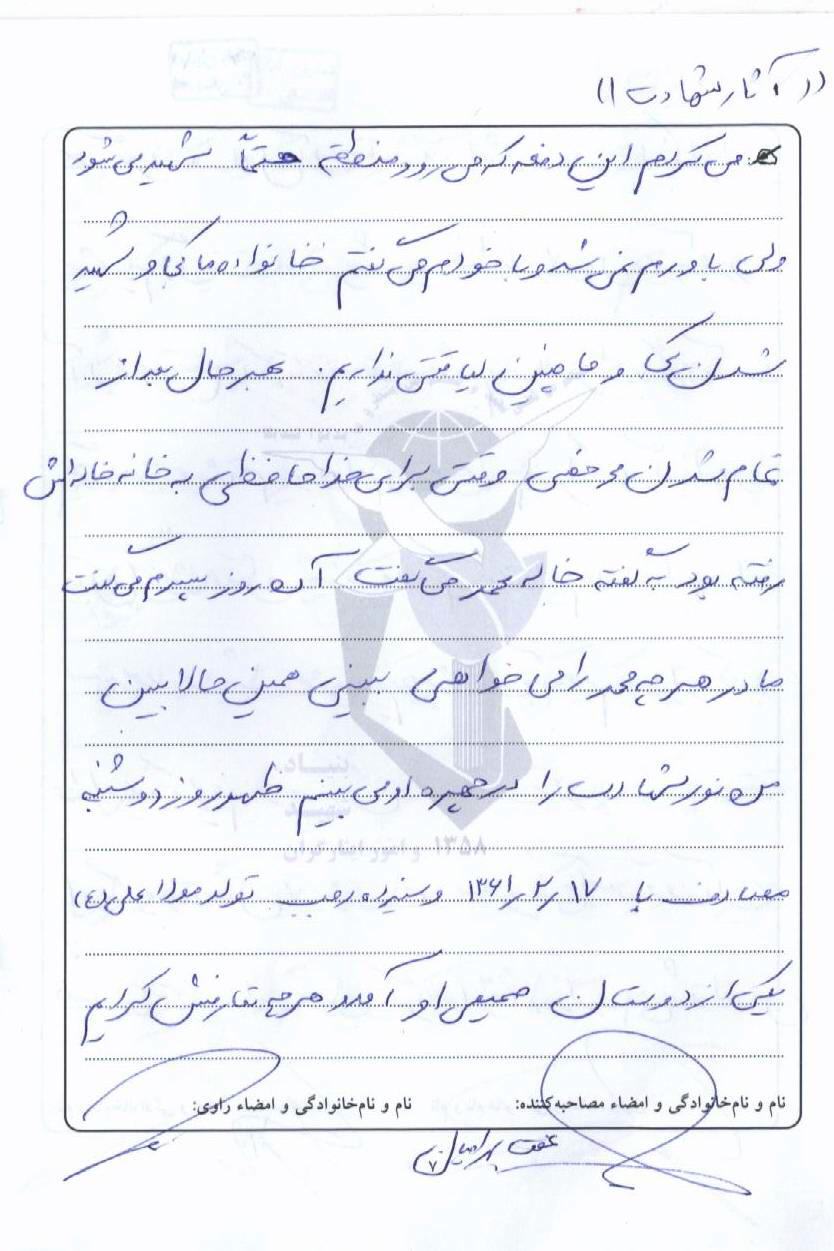 ((آثار شهادت ۱))
می کردم این دفعه که می رود منطقه حتماً شهید می شود
ولی باورم نمی شد و با خودم می گفتم خانواده ما کجا و شهید
شدن کجا و ما چنین لیاقتی نداریم. بهرحال بعد از
تمام شدن مرخصی وقتی برای خداحافظی به خانه خاله اش
رفته بود به گفته خاله محمد می گفت آن روز پسرم می گفت
مادر هر چه محمد را می خواهی ببینی همین حالا ببین
من نور شهادت را در چهره او می بینم ظهر روز دوشنبه
مصادف با ۱۷ر۲ر۱۳۶۱ و سیزده رجب تولد مولا علی (ع)
یکی از دوستان صمیمی او آمد هر چه تعارفش کردیم
نام و نام‌خانوادگی و امضاء مصاحبه‌کننده:
نام و نام‌خانوادگی و امضاء راوی:
۷
بنیاد
شهید
و امور ایثارگران
۱۳۵۸